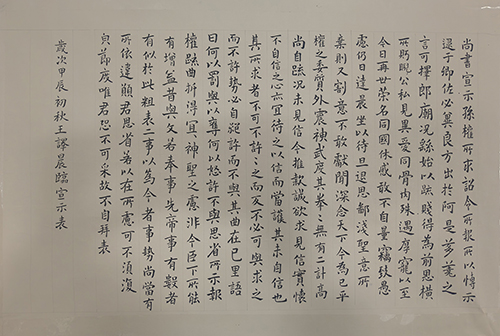 尚書宣示孫權所求詔令所報所以博示
逮于卿佐必冀良方出於阿是芻蕘之
言可擇郎廟況繇始以疏賤得為前恩橫
所盱睨公私見異愛同骨肉殊遇厚寵以至
今日再世榮名同國休慼敢不自量竊致愚
慮仍日達晨坐以待旦退思鄙淺聖意所
棄則又割意不敢獻聞深念天下今為已平
權之委質外震神武度其拳々無有二計高
尚自疏況未見信今推款誠欲求見信實懷
不自信之心亦宜待之以信而當護其未自信也
其所求者不可不許々之而反不必可與求之
而不許勢必自絕許而不與其曲在己里語
曰何以罰與以奪何以怒許不與思省所示報
權疏曲折得宜々神聖之慮非今臣下所能
有增益昔與文若奉事先帝事有數者
有似於此粗表二事以為今者事勢尚當有
所依違願君思省若以在所慮可不須復
皃節度唯君恐不可采故不自拜表
歲次甲辰初秋王譯晨臨宣示表